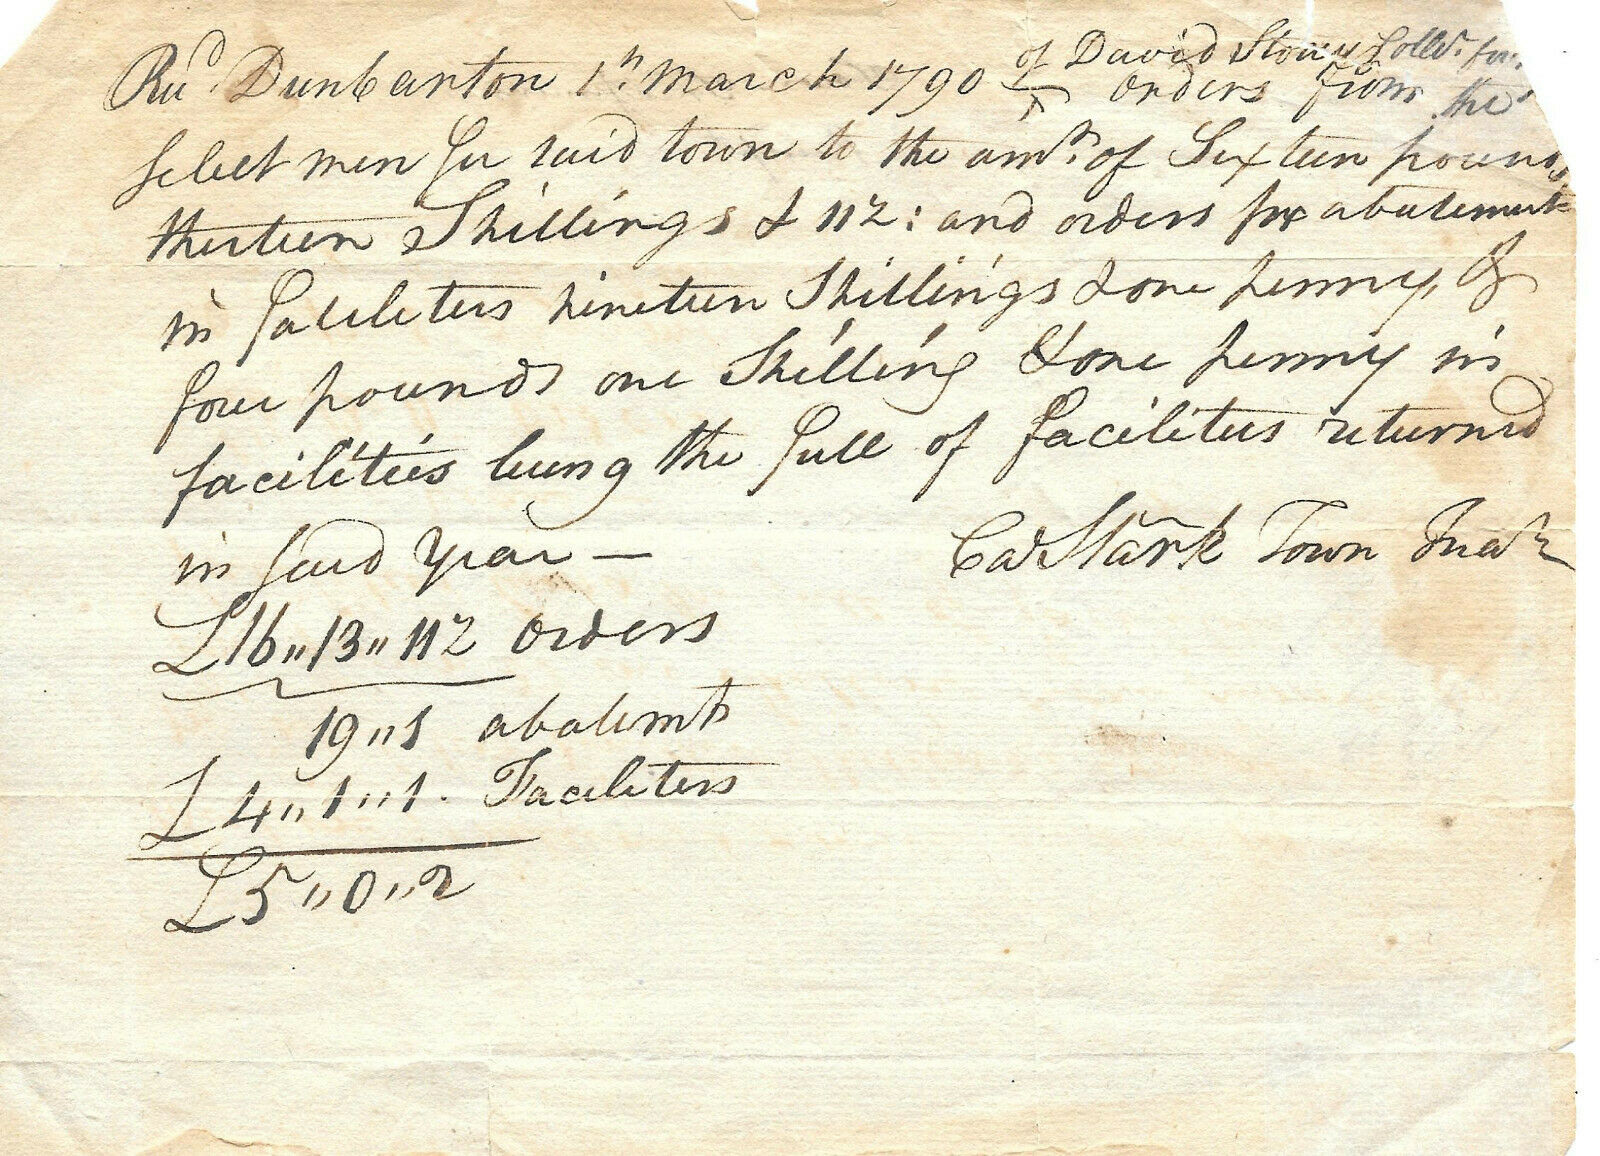 of David Story Collr. for
Recd. Dunbarton 1st. March 1790 orders from the
Select men for said town to the amt. of Sixteen pounds
thirteen Shillings & 11 2: and orders for abatements
in faciliters nineteen Shillings & one penny, &
four pounds one Shilling & one penny in
facilities being the full of facilities returnd
in said year —
Cad Stark Town Trear
£16,,13,,11 2 orders
19,,1 abatemts
£4,,1,,1. Faciliters
£5,,0,,2